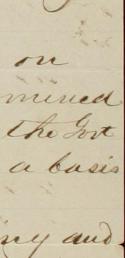 on
mined
the Govt
a basis
ing and